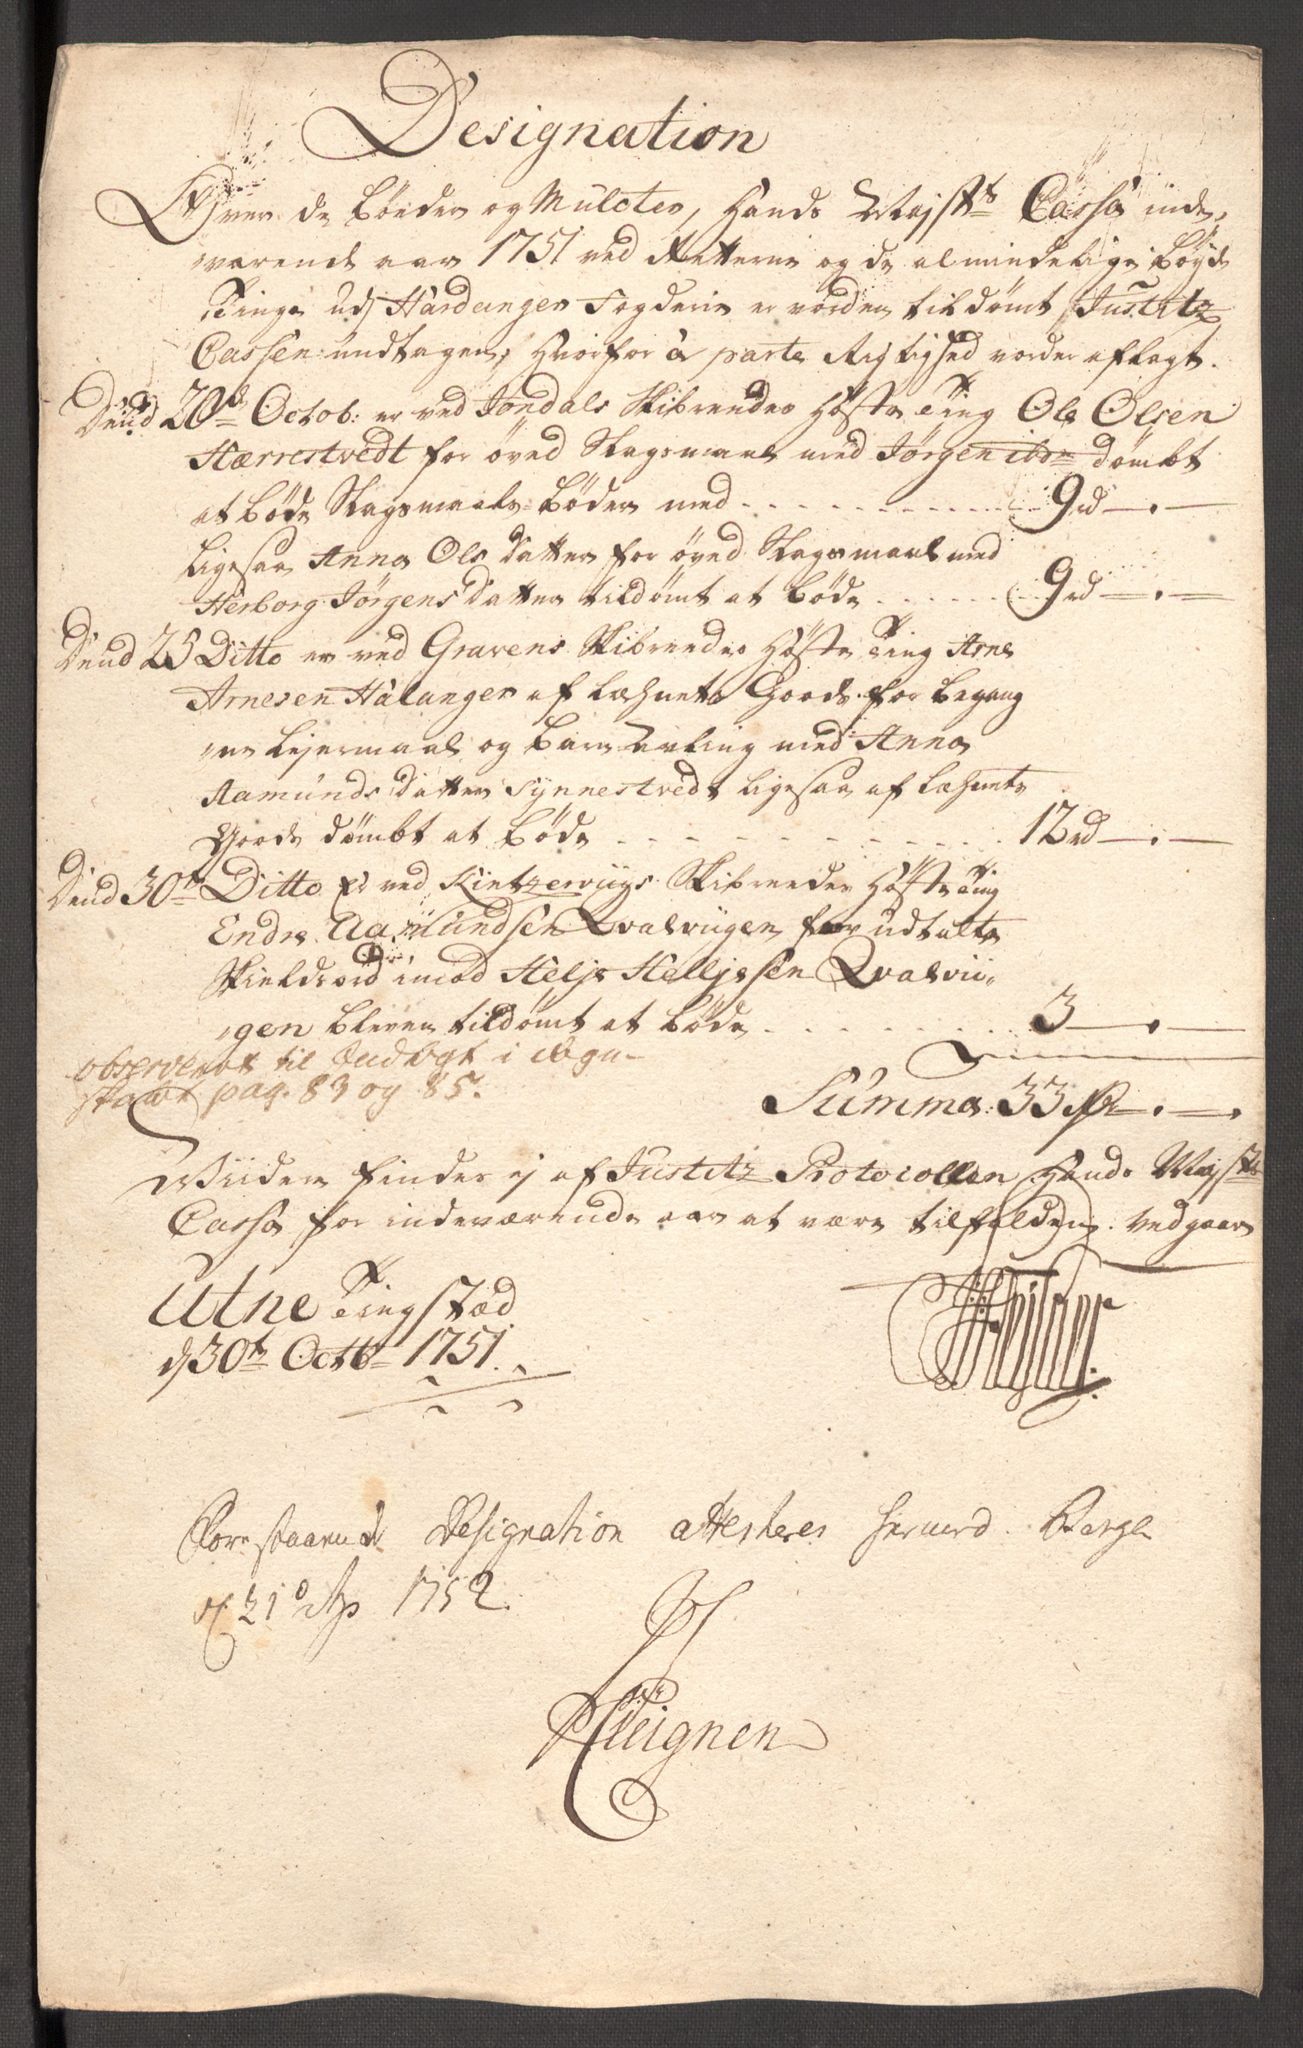 Designation
Over de bøeder og Mulcter, Hands Mayst:ts Cassa inde,,
værende aar 1751 ved Retterne og de almindelige bøyde
Tinge udj Hardanger Fogderie er vorden tildømt Justitz
Cassen undtagen, hvorfor à parte Rigtighed vorder aflagt.
Dend 20de Octob: er ved Jondals Skibreedes Høste Ting Ole Olsen
Hærrestvedt for øved Slagsmaal med Jørgen ibm dømbt
at bøde Slagsmaals bøder med 9 rd - . -
Ligesaa Anna Ols datter for øved Slagsmaal med
Herborg Jørgens datter tildømt at bøde 9 rd - . -
Dend 25 Ditto er ved Gravens Skibreedes Høste Ting Arne
Arnesen Hàlanger af Læhnets Goods for begang
,,ne Lejermaal og barn Aufling med Anna
Aamunds datter Synnestvedt ligesaa af Læhnets
Goods dømbt at bøde 12 rd - . -
Dend 30te Ditto er ved Kintzerwiigs Skibreedes Høste Ting
Endre Aamundsen Qvalviigen for udtalte
Skieldsord imod Helje Helljesen Qvalvii,,
,,gen bleven tildømt at bøde 3 - . -
observeret til Indtægt i Regn-
skabet pag. 83 og 85.
Summa: 33 Rd - . - .
Wiidere findes ej af Justitz Protocollen Hands Mayst:ts
Cassa for indeværende aar at være tilfalden. Vedgaar
Utne Tingstæd
d 30te Octbr 1751.
Forestaaende Designation attesteres herved. Berge
d. 21 1752.
Fleignen